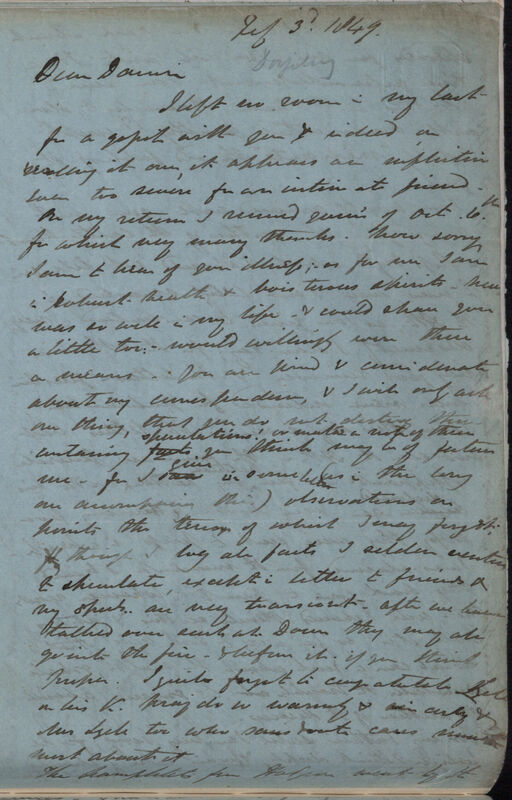 Feb 3d. 1849.
Dorjiling
Dear Darwin
I left no room in my last
for a gossip with you & indeed, on
reading it over, it appears an infliction
even too severe for an intimate friend. —
On my return I received yours of Oct. 6th
for which very many thanks. How sorry
I am to hear of your illness; as for me I am
in robust health & boisterous spirits — never
was so well in my life — & could spare you
a little too; — would willingly were there
a means. — You are kind & considerate
about my correspondence, & I will only ask
one thing, that you do not destroy those
speculations, or make a note of them
containing facts you think may be of future
use — for I give in some (as in the long
one accompanying this) observations on
points the tenor of which I may forget:
though I log all facts I seldom venture
to speculate, except in letters to friends &
my spects. are very transient — after we have
talked over such at Down they may all
go into the fire — & before it if you think
proper. I quite forgot to congratulate Lyell
on his K. Pray do so warmly & sincerely &
Mrs Lyell too who cares
most about it
The pamphlets for Hodgson went by